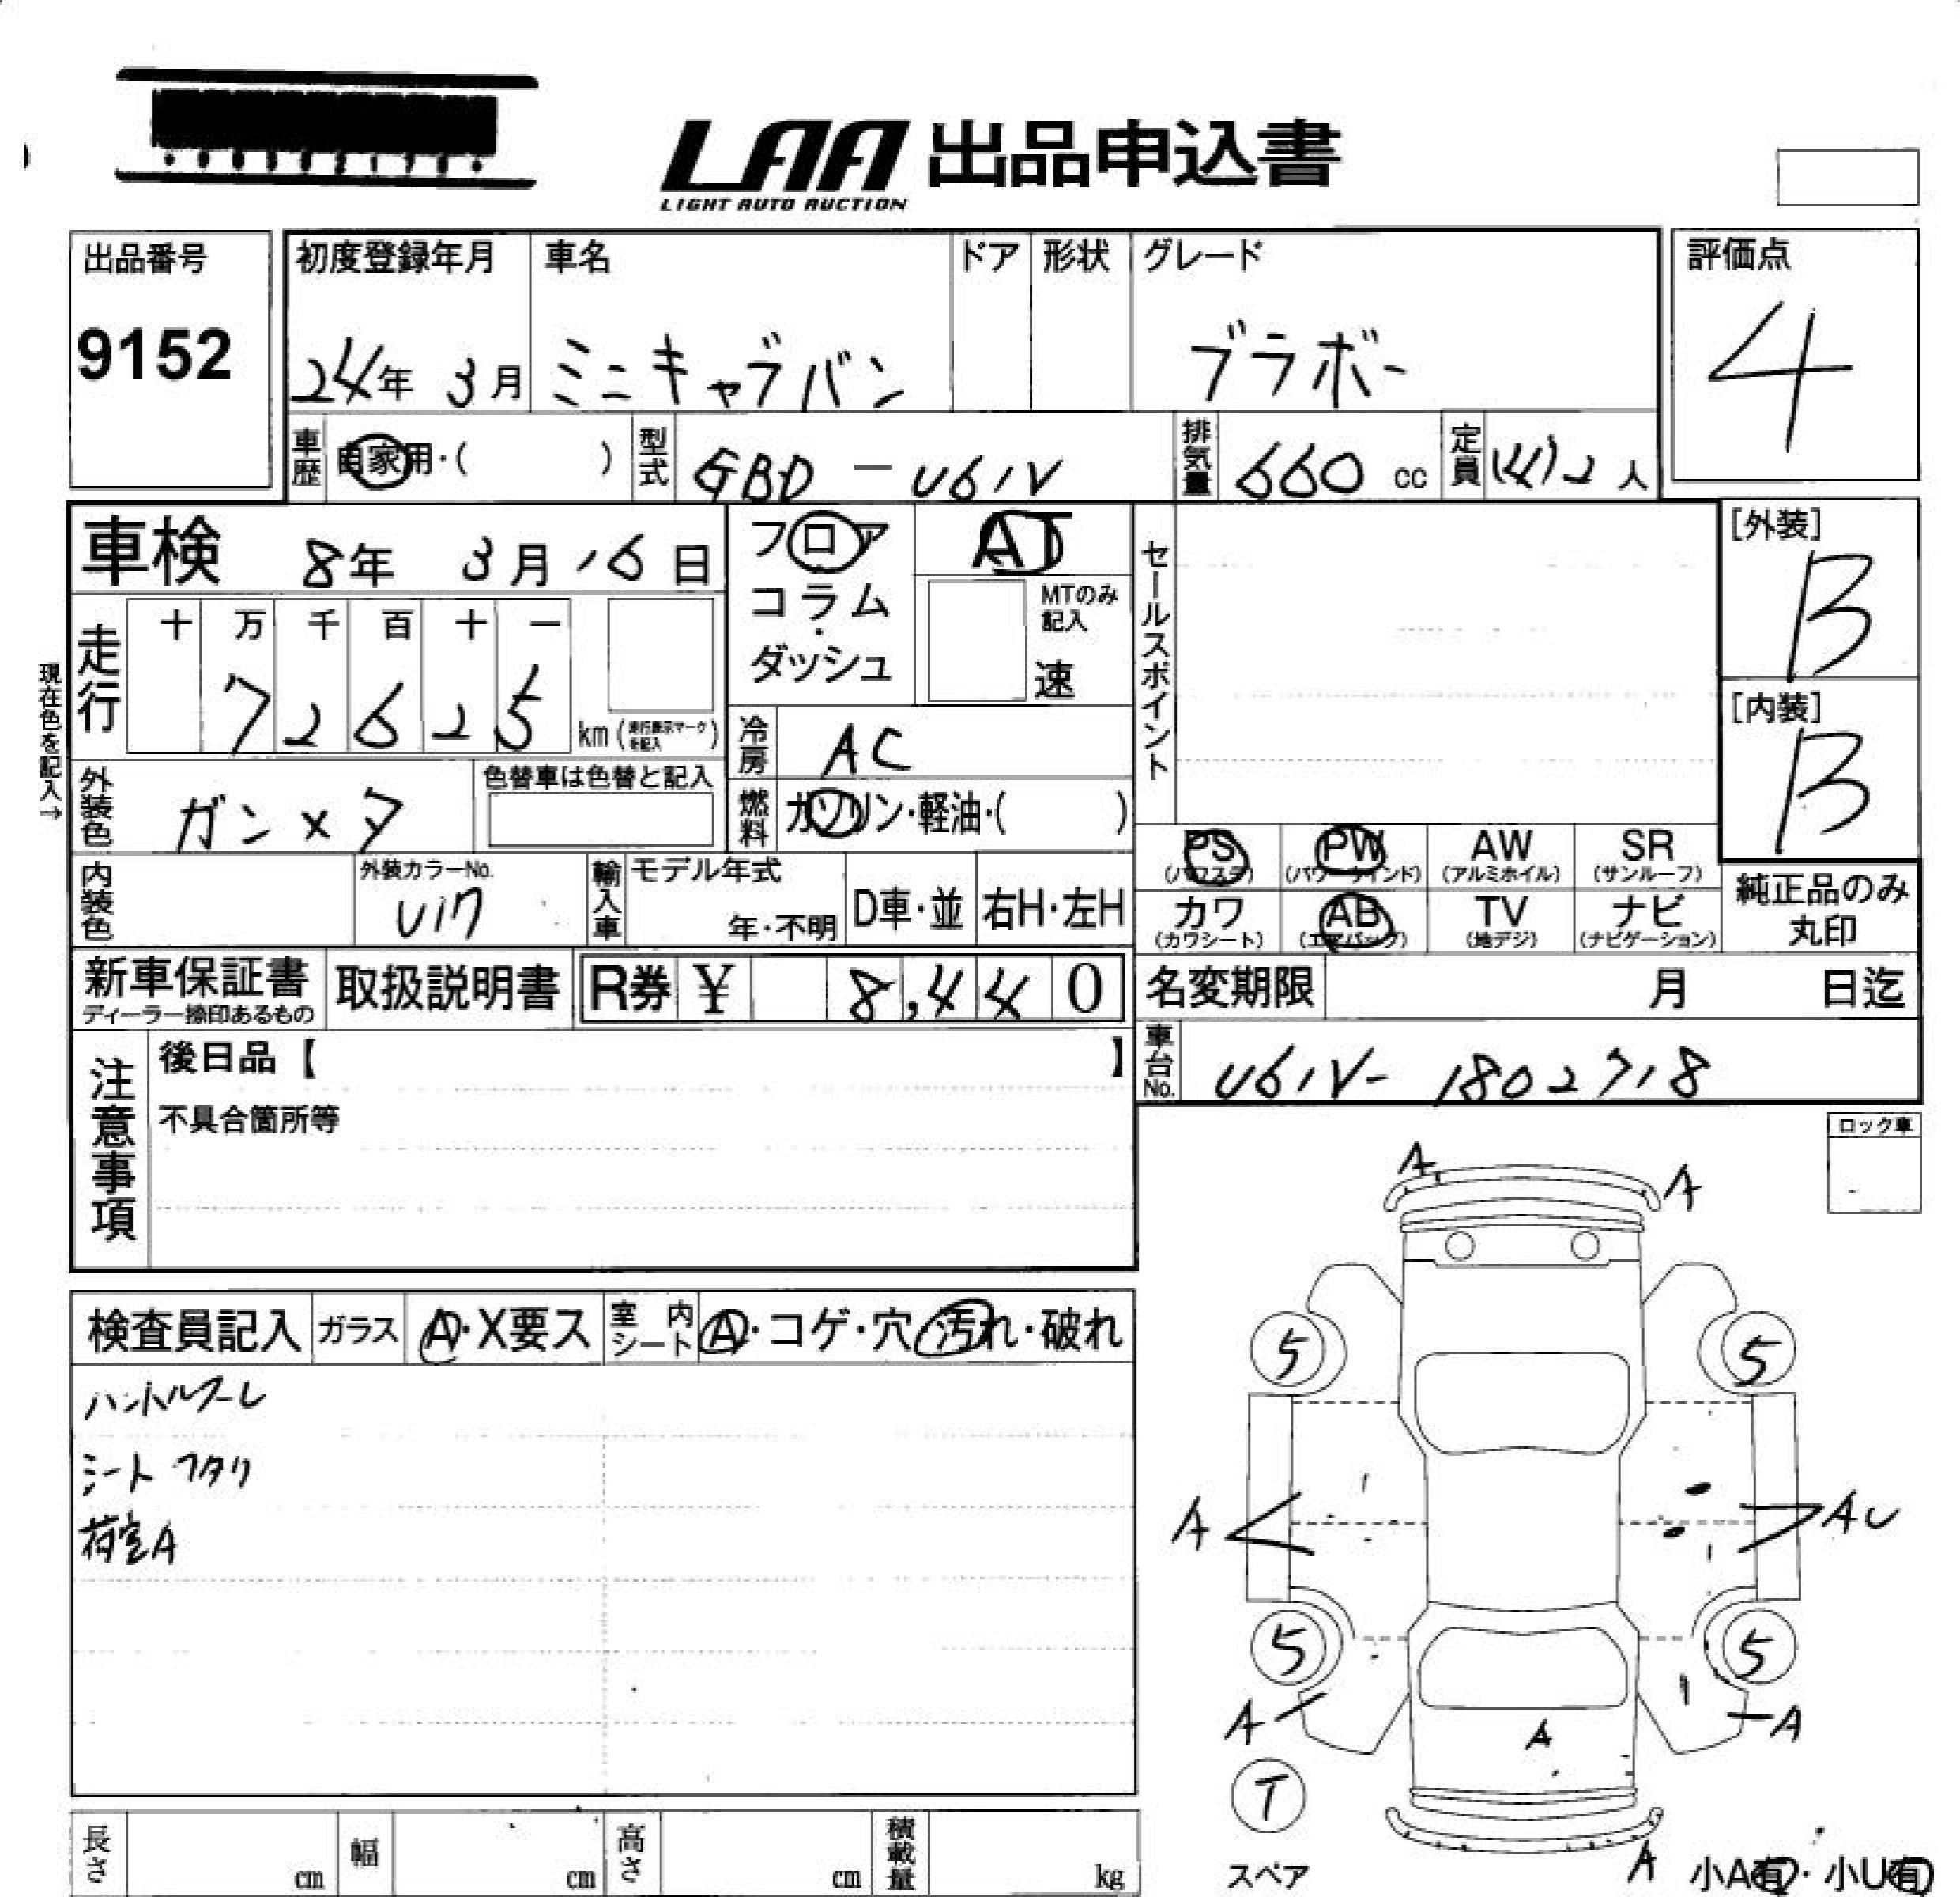 LAA 出品申込書
LIGHT AUTO AUCTION
出品番号
9152
初度登録年月
24年 3月
車名
ミニキャブバン
ドア
形状
グレード
ブラボー
評価点
4
車歴
自家用・( )
型式
GBD-U61V
排気量
660 cc
定員
(4)2 人
車検 8年 3月 16日
フロア
コラム
・
ダッシュ
AT
MTのみ
記入
速
セールスポイント
[外装]
B
[内装]
B
現在色を記入→
走行
十 万 千 百 十 一
7 2 6 2 5
km (走行表示マークを記入)
冷房
AC
外装色
ガンメタ
色替車は色替と記入
燃料
ガソリン・軽油・( )
PS
(パワステ)
PW
(パワーウインド)
AW
(アルミホイル)
SR
(サンルーフ)
カワ
(カワシート)
AB
(エアバック)
TV
(地デジ)
ナビ
(ナビゲーション)
純正品のみ
丸印
内装色
外装カラーNo.
U17
輸入車
モデル年式
年・不明
D車・並
右H・左H
新車保証書
ディーラー捺印あるもの
取扱説明書
R券 ¥ 8,440
名変期限 月 日迄
車台No.
U61V-1802718
注意事項
後日品【 】
不具合箇所等
ロック車
検査員記入
ガラス
A・X要ス
室内シート
A・コゲ・穴・汚れ・破れ
ハンドルスレ
シート ヘタリ
荷室A
A
A
5
5
A
AU
5
5
A
A
A
T
スペア
A
小A有・小U有
長さ cm
幅 cm
高さ cm
積載量 kg